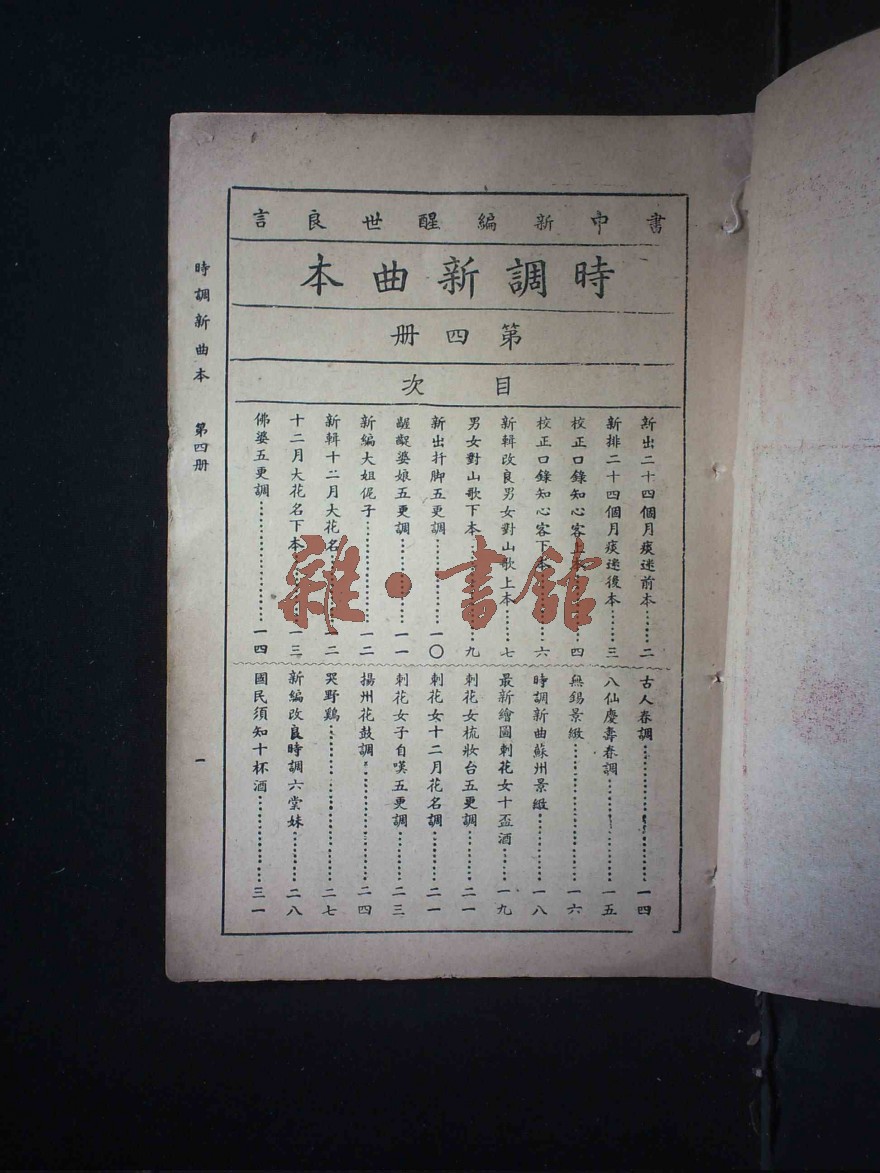 書中新編醒世良言
時調新曲本
第四册
目次
新出二十四個月痰迷前本……二
新排二十四個月痰迷後本……三
校正口錄知心客上本……四
校正口錄知心客下本……六
新輯改良男女對山歌上本……七
男女對山歌下本……九
新出扦脚五更調……一〇
齷齪婆娘五更調……一一
新編大姐伲子……一二
新輯十二月大花名……一二
十二月大花名下本……一三
佛婆五更調……一四
古人春調……一四
八仙慶壽春調……一五
無錫景緻……一六
時調新曲蘇州景緻……一八
最新繪圖刺花女十盃酒……一九
刺花女梳妝台五更調……二一
刺花女十二月花名調……二一
刺花女子自嘆五更調……二三
揚州花鼓調……二四
哭野鷄……二七
新編改良時調六棠妹……二八
國民須知十杯酒……三一
時調新曲本 第四册
一
雜·書館